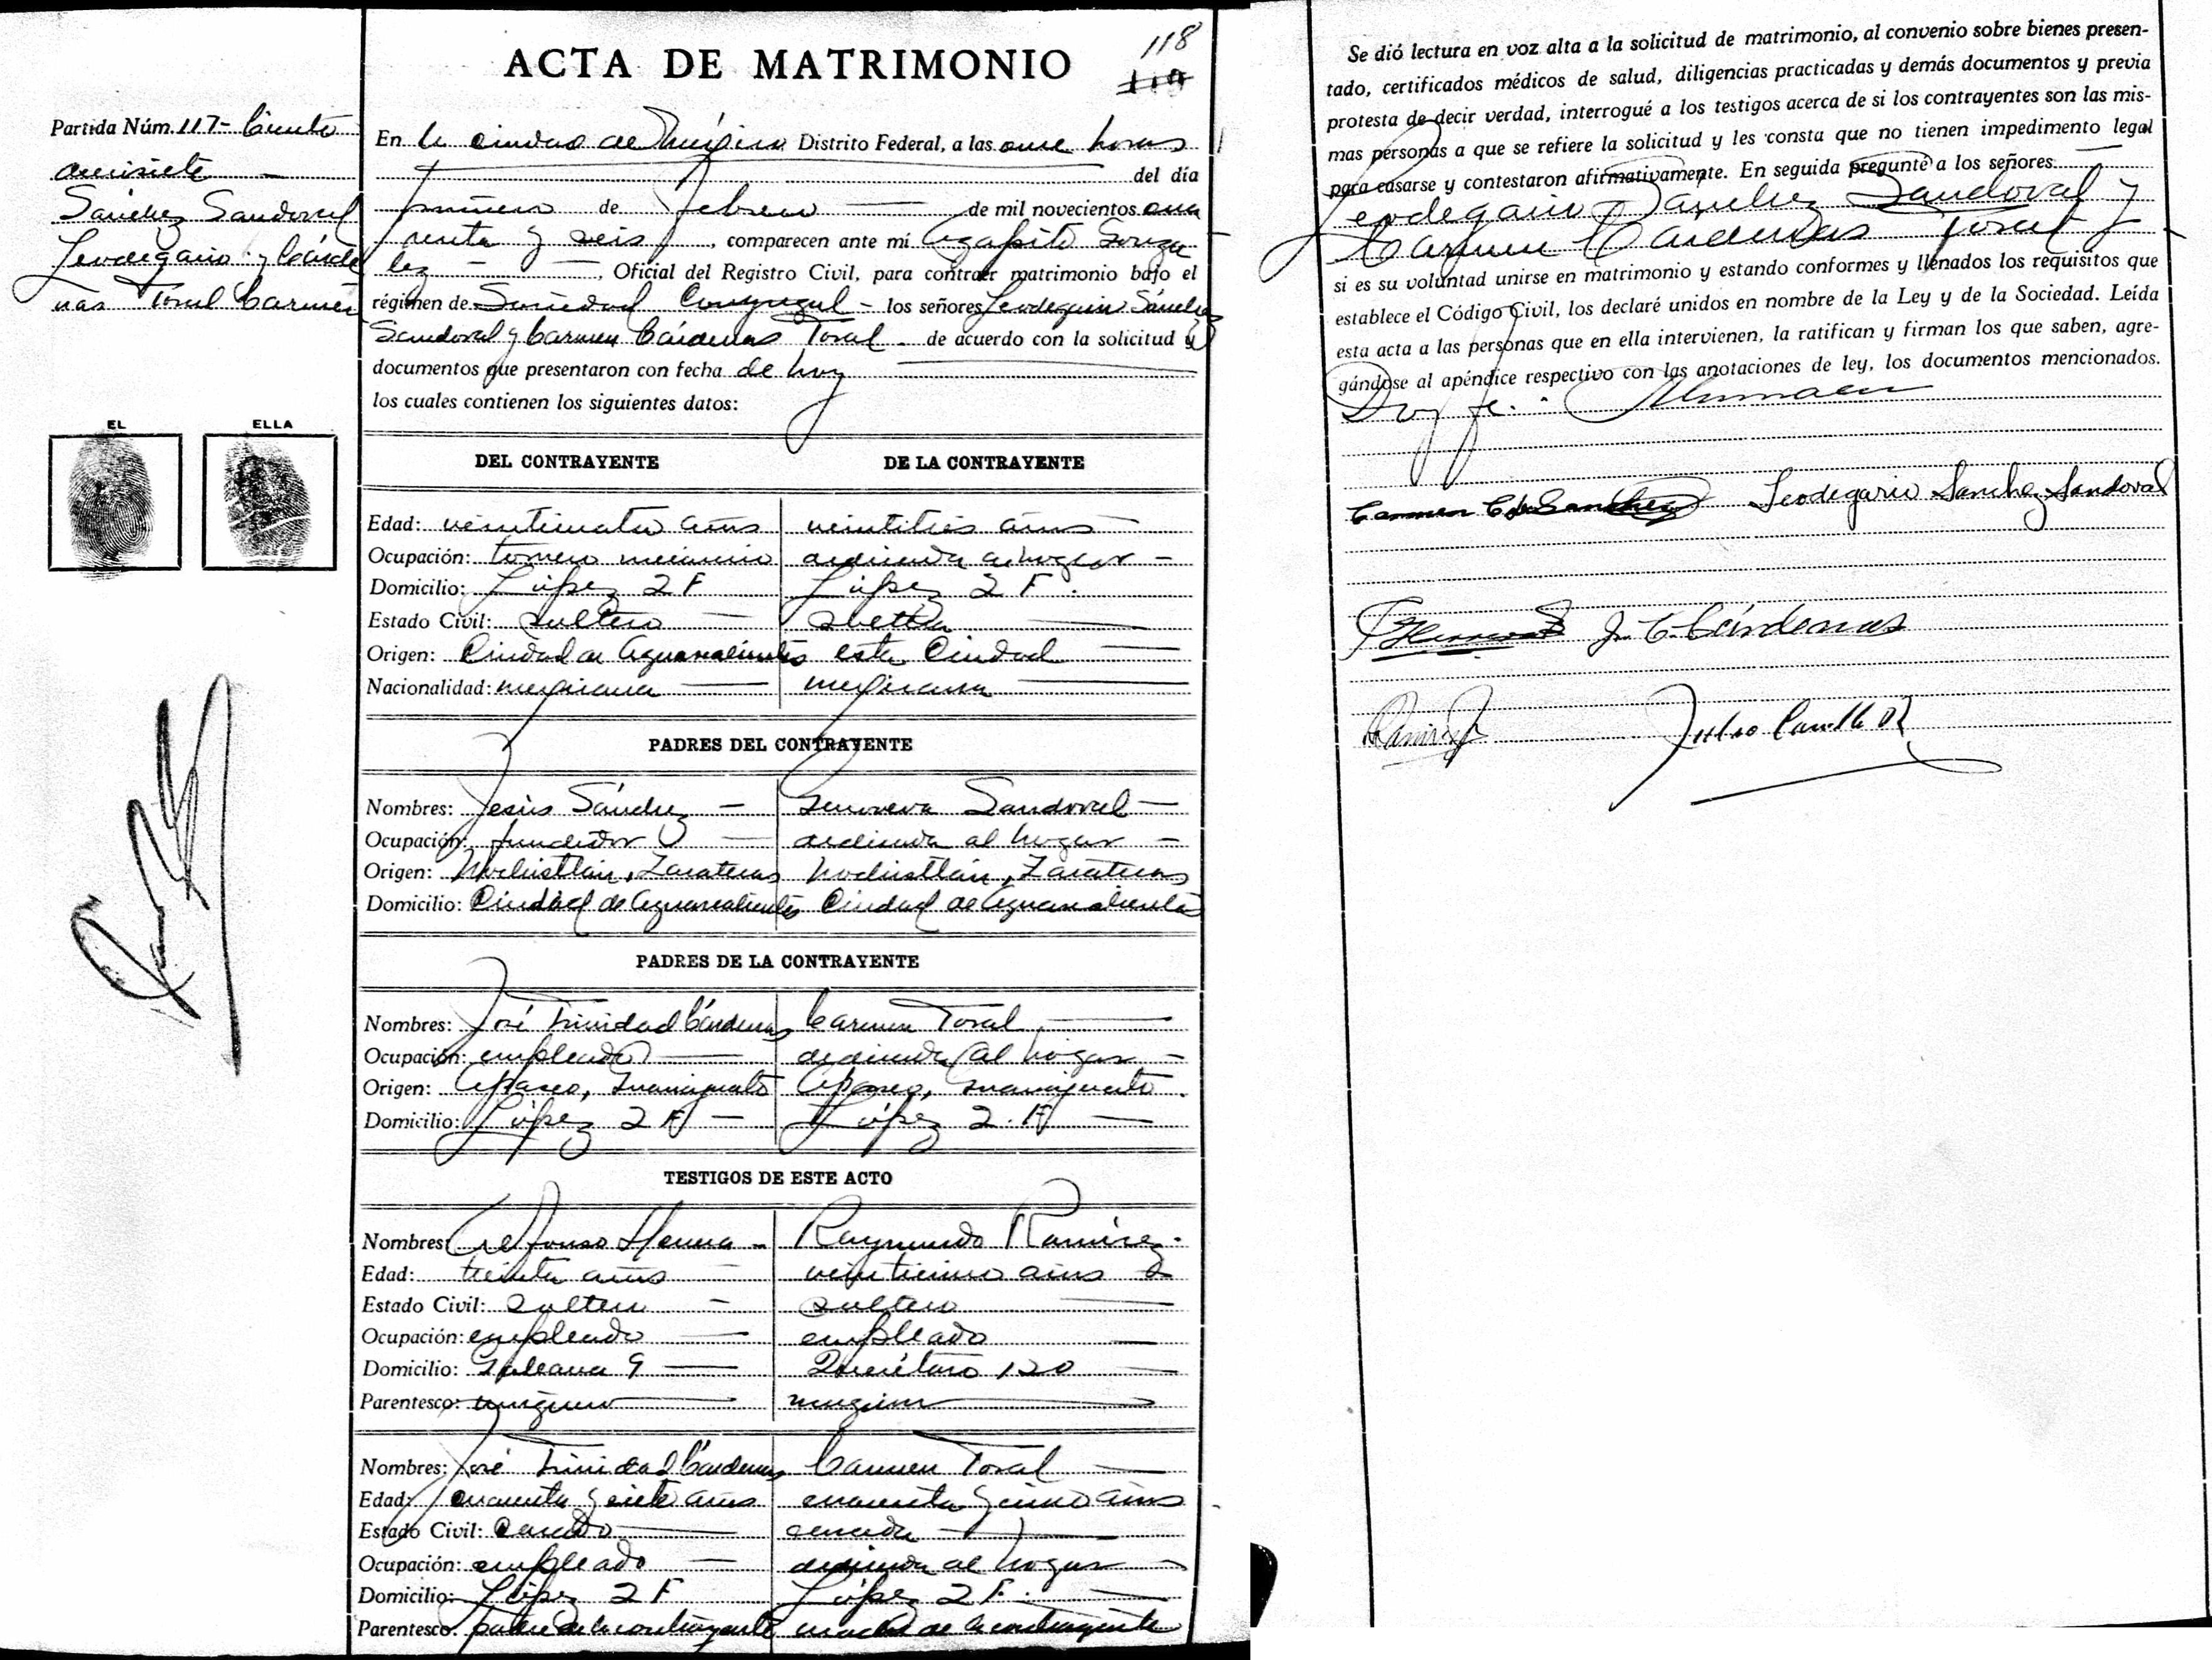 118
ACTA DE MATRIMONIO
Partida Núm. 117- Ciento
diecisiete
Sánchez Sandoval
Leodegario y Cárde
nas Toral Carmen
EL ELLA
En la ciudad de México Distrito Federal, a las once horas
del día
primero de febrero de mil novecientos cua
renta y seis, comparecen ante mí Agapito Gonza
lez, Oficial del Registro Civil, para contraer matrimonio bajo el
régimen de Sociedad Conyugal - los señores Leodegario Sánchez
Sandoval y Carmen Cárdenas Toral - de acuerdo con la solicitud y
documentos que presentaron con fecha de hoy
los cuales contienen los siguientes datos:
DEL CONTRAYENTE DE LA CONTRAYENTE
Edad: veinticuatro años veintitrés años
Ocupación: tornero mecánico dedicada al hogar -
Domicilio: López 2 F López 2 F.
Estado Civil: soltero soltera
Origen: Ciudad de Aguascalientes esta Ciudad
Nacionalidad: mexicana mexicana
PADRES DEL CONTRAYENTE
Nombres: Jesús Sánchez - Genoveva Sandoval -
Ocupación: fundidor dedicada al hogar -
Origen: Nochistlán, Zacatecas Nochistlán, Zacatecas
Domicilio: Ciudad de Aguascalientes Ciudad de Aguascalientes
PADRES DE LA CONTRAYENTE
Nombres: José Trinidad Cárdenas Carmen Toral
Ocupación: empleado dedicada al hogar -
Origen: Apaseo, Guanajuato Apaseo, Guanajuato.
Domicilio: López 2 F - López 2. F
TESTIGOS DE ESTE ACTO
Nombres: Alfonso Herrera - Raymundo Ramírez.
Edad: treinta años veinticinco años
Estado Civil: soltero - soltero
Ocupación: empleado empleado
Domicilio: Galeana 9 Querétaro 120
Parentesco: ninguno ninguno
Nombres: José Trinidad Cárdenas Carmen Toral
Edad: cuarenta y siete años cuarenta y cinco años
Estado Civil: casado casada
Ocupación: empleado dedicada al hogar
Domicilio: López 2 F López 2 F.
Parentesco: padre de la contrayente madre de la contrayente
Se dió lectura en voz alta a la solicitud de matrimonio, al convenio sobre bienes presen-
tado, certificados médicos de salud, diligencias practicadas y demás documentos y previa
protesta de decir verdad, interrogué a los testigos acerca de si los contrayentes son las mis-
mas personas a que se refiere la solicitud y les consta que no tienen impedimento legal
para casarse y contestaron afirmativamente. En seguida pregunté a los señores
Leodegario Sánchez Sandoval y
Carmen Cárdenas Toral
si es su voluntad unirse en matrimonio y estando conformes y llenados los requisitos que
establece el Código Civil, los declaré unidos en nombre de la Ley y de la Sociedad. Leída
esta acta a las personas que en ella intervienen, la ratifican y firman los que saben, agre-
gándose al apéndice respectivo con las anotaciones de ley, los documentos mencionados.
Doy fe.
Carmen C. de Sanchez Leodegario Sanchez Sandoval
J. T. Cárdenas